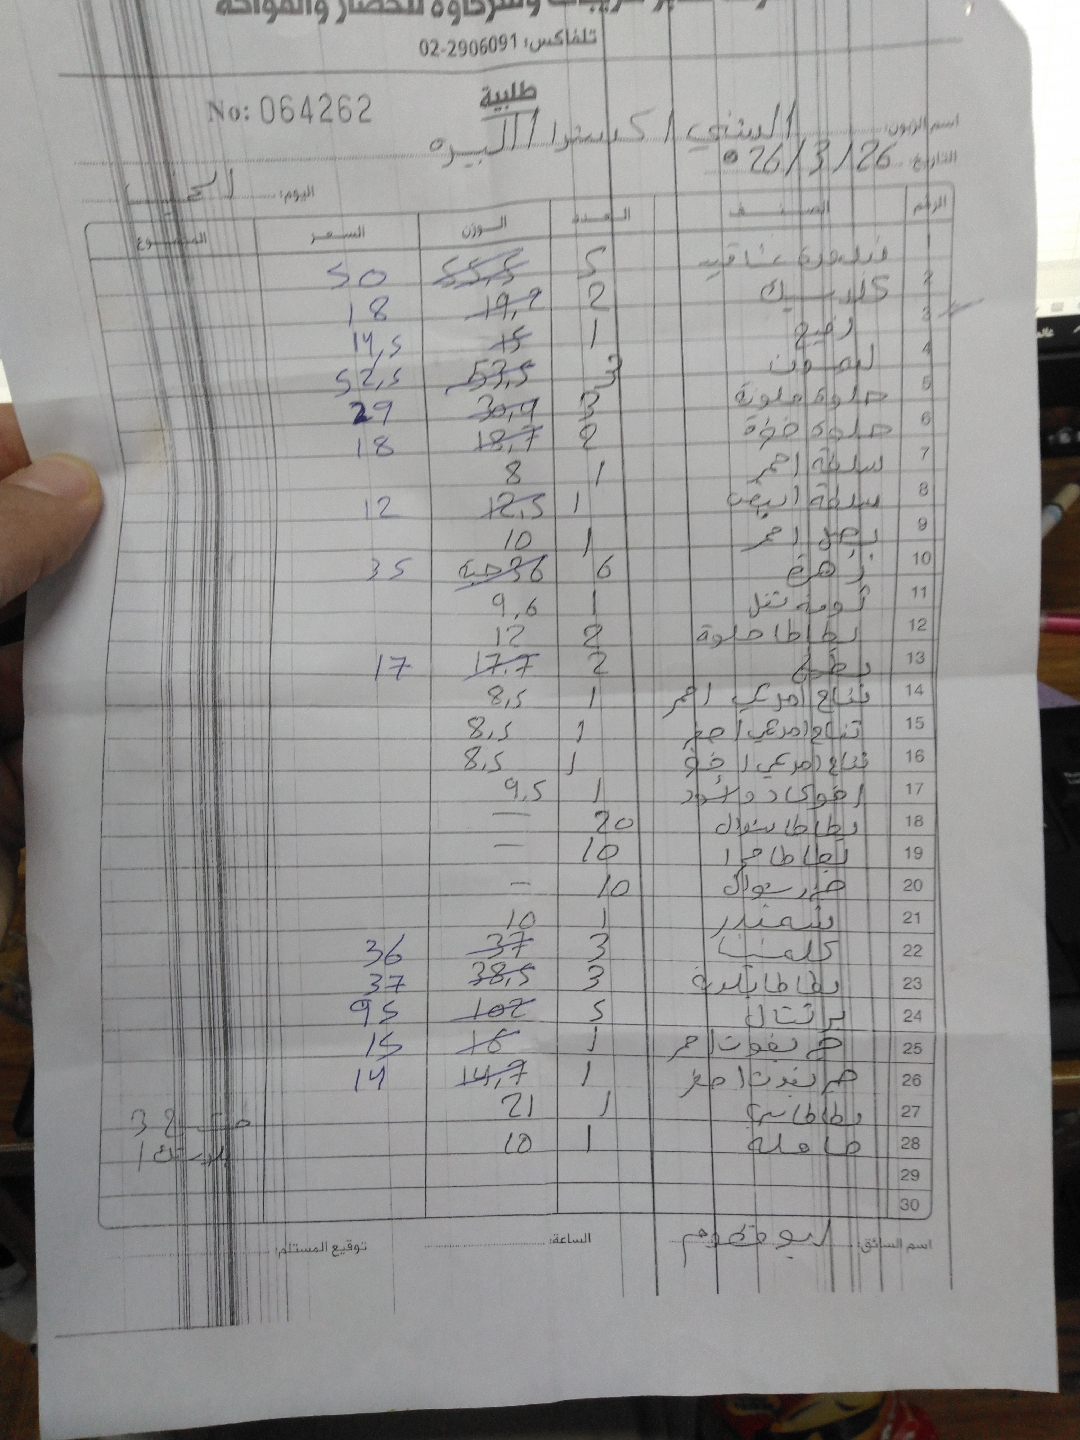 تلفاكس: 02-2906091
طلبية
No: 064262
اسم الزبون: السني اكسترا / البيره
التاريخ: 26/3/26
اليوم:
الرقم الصنف العدد الوزن السعر المجموع
1 بندورة 5 55,5 50
2 كلاسيك 2 19,2 18
3 1 15 14,5
4 ليمون 3 53,5 52,5
5 حلوة ملونة 3 30,9 29
6 حلوة 2 18,7 18
7 سلطة احمر 1 8
8 سلطة ابيض 1 12,5 12
9 بصل احمر 1 10
10 زهرة 6 36 حبه 35
11 1 9,6
12 بطاطا حلوة 2 12
13 بطيخ 2 17,7 17
14 تفاح امريكي احمر 1 8,5
15 تفاح امريكي اصفر 1 8,5
16 تفاح امريكي اخضر 1 8,5
17 افوكادو اسود 1 9,5
18 بطاطا شوال 20 —
19 بطاطا 10 —
20 شوال 10 —
21 شمندر 1 10
22 كلمنتينا 3 37 36
23 بطاطا 3 38,5 37
24 برتقال 5 102 95
25 جريفوت احمر 1 16 15
26 جريفوت اصفر 1 14,7 14
27 بطاطا 1 21
28 1 10
29
30
اسم السائق:
الساعة:
توقيع المستلم: